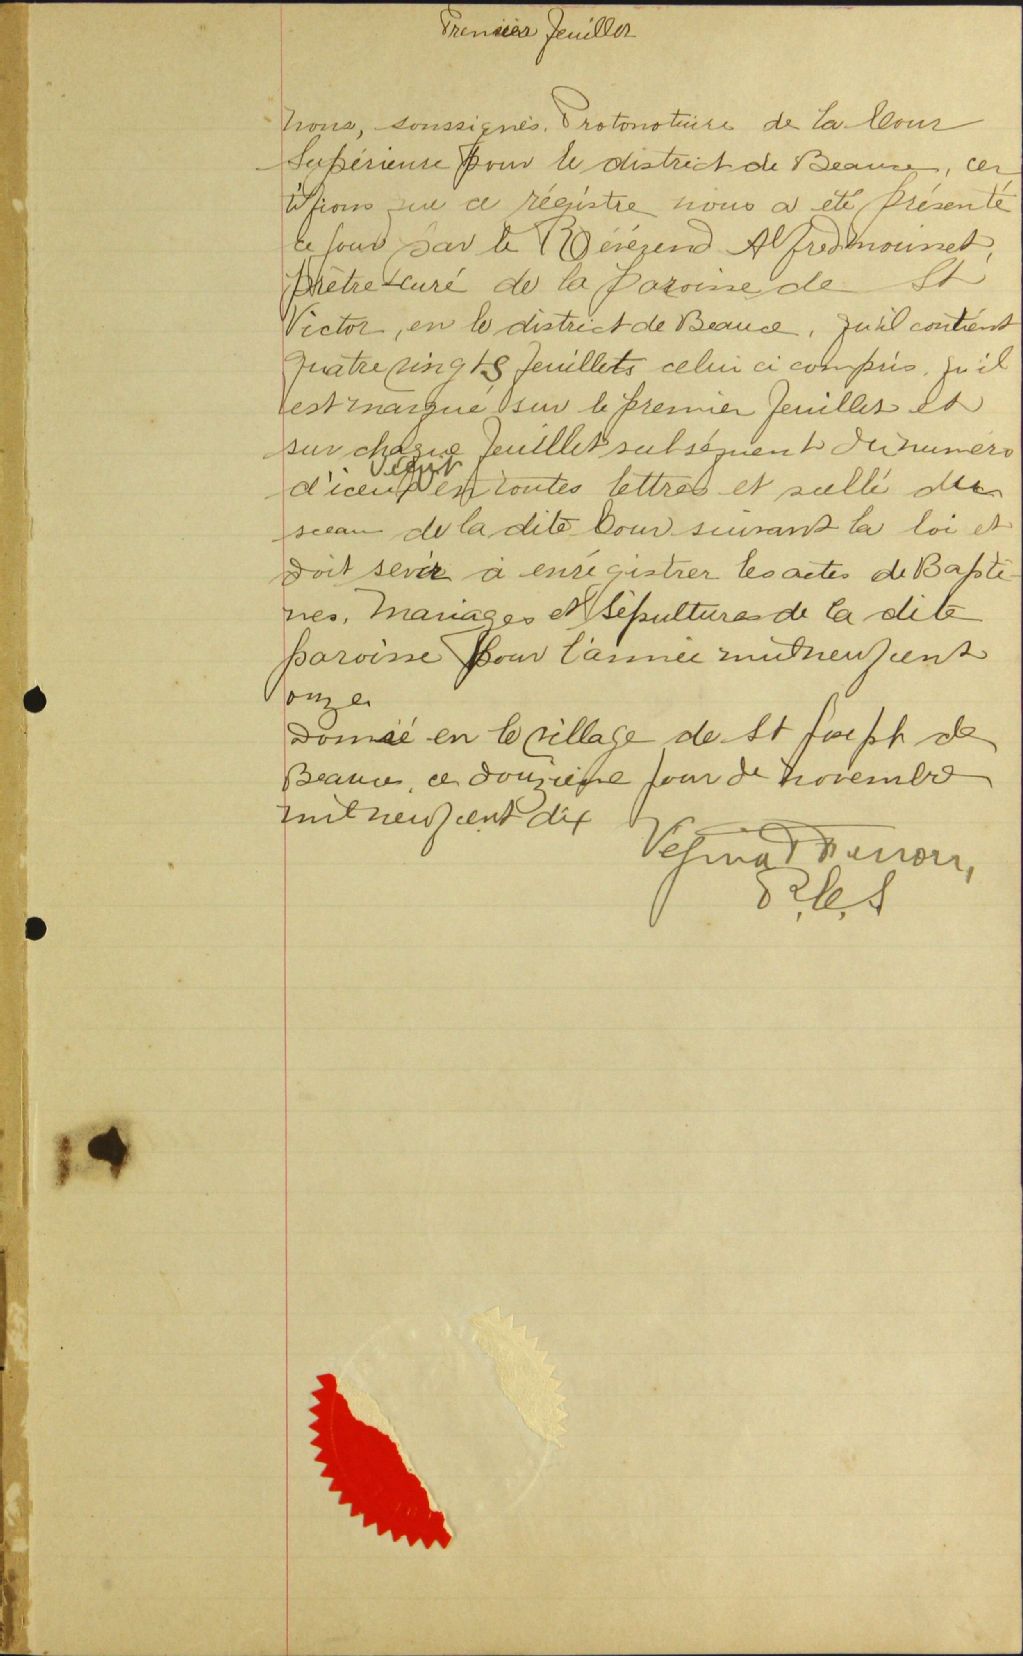 Premier feuillet
Nous, soussignés, Protonotaire de la Cour
Supérieure pour le district de Beauce, cer
tifions que ce régistre nous a été présenté
ce jour par le Révérend Alfred
prêtre curé de la paroisse de St
Victor, en le district de Beauce, qu'il contient
quatre vingts feuillets celui ci compris, qu'il
est marqué sur le premier feuillet et
sur chaque feuillet subséquent du numéro
d'iceux écrit en toutes lettres et scellé du
sceau de la dite Cour suivant la loi et
doit servir à enrégistrer les actes de Baptê
mes, Mariages et Sépultures de la dite
paroisse pour l'année mil neuf cent
onze
Donné en le village de St Joseph de
Beauce, ce douzième jour de novembre
mil neuf cent dix
P.C.S